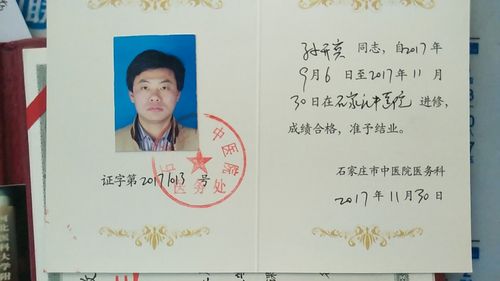 孙 同志，自2017年
9月6日至2017年11月
30日在石家庄中医院进修，
成绩合格，准予结业。
证字第20171013号
中医院
医务处
石家庄市中医院医务科
2017年11月30日
河北医
科大学附